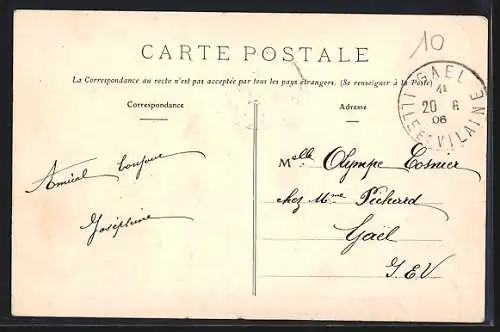 10
CARTE POSTALE
La Correspondance au recto n'est pas acceptée par tous les pays étrangers. (Se renseigner à la Poste)
GAEL
ILLE-ET-VILAINE
20 6
06
Correspondance
Adresse
Amical bonjour
Joséphine
Melle Olympe Cosnier
chez Mme Péchard
Gaël
I.E.V